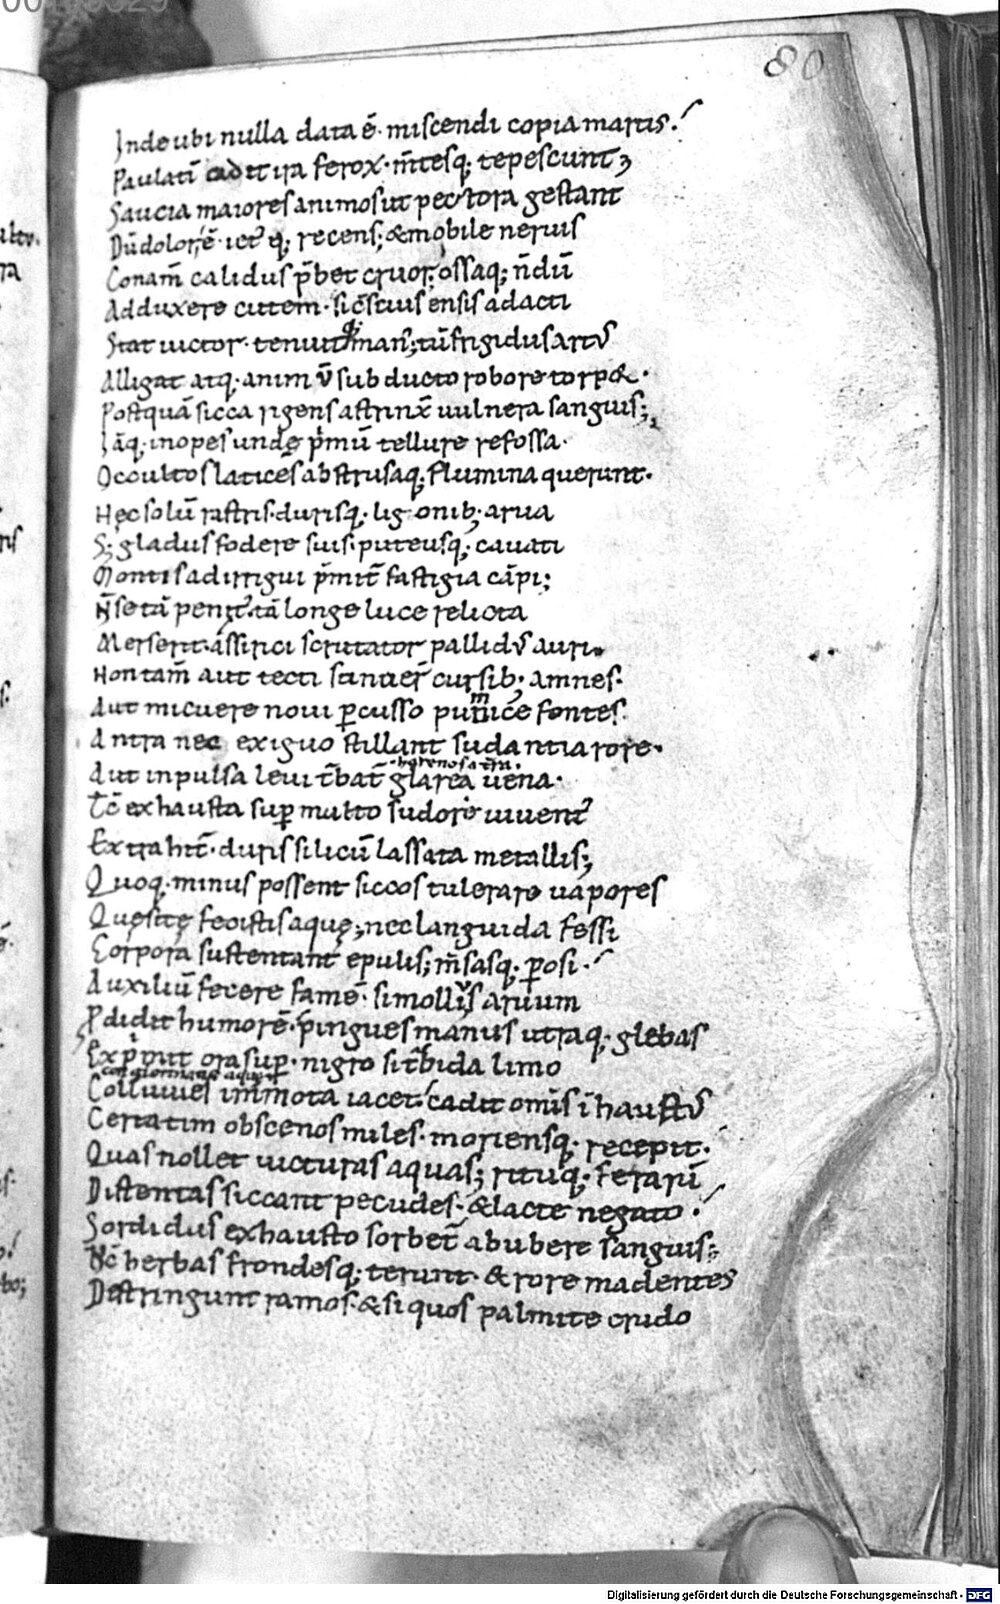 80
Inde ubi nulla data ē· miscendi copia martis.
Paulatī cadit ira ferox· m̄tesq; tepescunt
Saucia maiores animos ut pectora gestant
Dū dolor; ē· ict᷒ q; recens; & mobile neruis
Conam̄ calidus p̄bet cruor; ossaq; n̄dū
Adduxere cutem· si c̄scius ensis adacti
Stat uictor· tenuitq; man᷒; tū frigidus art᷒
Alligat atq; animū subducto robore torpor·
Postquā sicca rigens astrinx̄ uulnera sanguis;
Iāq; inopes undę p̄mū tellure refossa·
Occultos latices abstrusaq; flumina querunt·
Hęc solū rastris· durisq; ligonib; arua
S; gladiis fodere suis; puteusq; cauati
Montis ad irrigui p̄mit̄ fastigia cāpi;
N̄ se tā penit᷒· tā longe luce relicta
Merserit· assirici scrutator pallid᷒ auri·
Non tam̄ aut tecti sonuer̄ cursib; amnes·
Aut micuere noui percusso pumice fontes·
Antra nec exiguo stillant sudantia rore·
· harenosa tr̄a·
Aut inpulsa leui t᷒bat᷒ glarea uena·
Tc̄ exhausta sup multo sudore iuuent᷒
Extrahit᷒· duris silicū lassata metallis;
Quoq; minus possent siccos tulerare uapores
Quesitę fecistis aquę; nec languida fessi
Corpora sustentant epulis; m̄sasq; perosi·
Auxiliū fecere famē· si mollius aruum
Pdidit humorē· pingues manus utraq; glebas
Exp̄mit ora sup· nigro si t᷒bida limo
congregatio aquę
Colluuies immota iacet· cadit om̄is ī haust᷒
Certatim obscenos miles· moriensq; recepit·
Quas nollet uicturas aquas; rituq; ferarū
Distentas siccant pecudes· & lacte negato·
Sordidus exhausto sorbet᷒ ab ubere sanguis;
Tc̄ herbas frondesq; terunt· & rore madentes
Distringunt ramos· & si quos palmite crudo
Digitalisierung gefördert durch die Deutsche Forschungsgemeinschaft - DFG